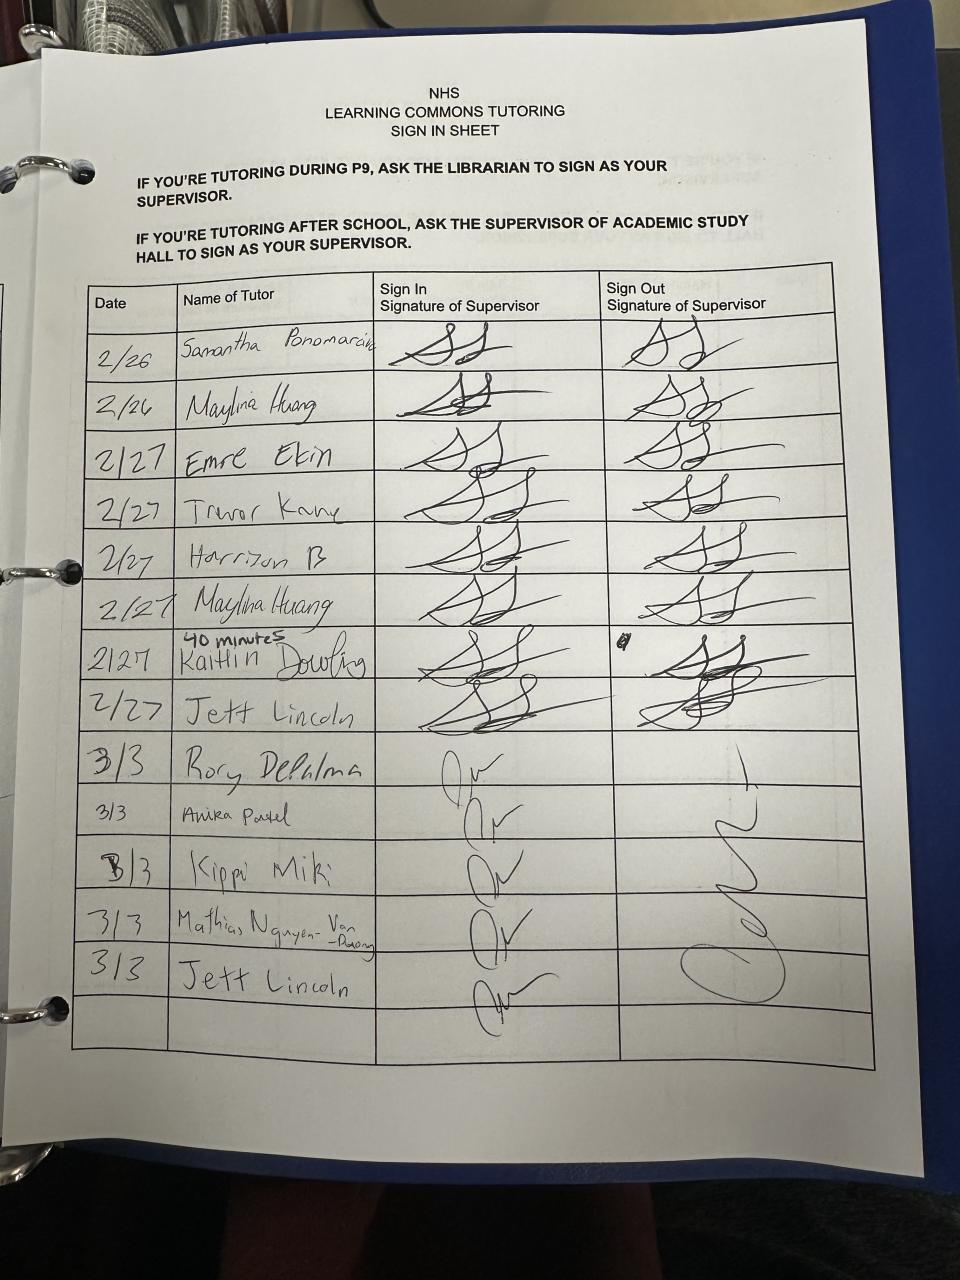 NHS
LEARNING COMMONS TUTORING
SIGN IN SHEET
IF YOU'RE TUTORING DURING P9, ASK THE LIBRARIAN TO SIGN AS YOUR
SUPERVISOR.
IF YOU'RE TUTORING AFTER SCHOOL, ASK THE SUPERVISOR OF ACADEMIC STUDY
HALL TO SIGN AS YOUR SUPERVISOR.
Date Name of Tutor Sign In Signature of Supervisor Sign Out Signature of Supervisor
2/26 Samantha
2/26 Maylina Huang
2/27 Emre Ekin
2/27 Trevor Kane
2/27 Harrison B
2/27 Maylina Huang
40 minutes
2/27 Kaitlin Dowling
2/27 Jett Lincoln
3/3 Rory DePalma
3/3 Anika Patel
3/3 Kippi Miki
3/3 Mathias Nguyen-Van
3/3 Jett Lincoln